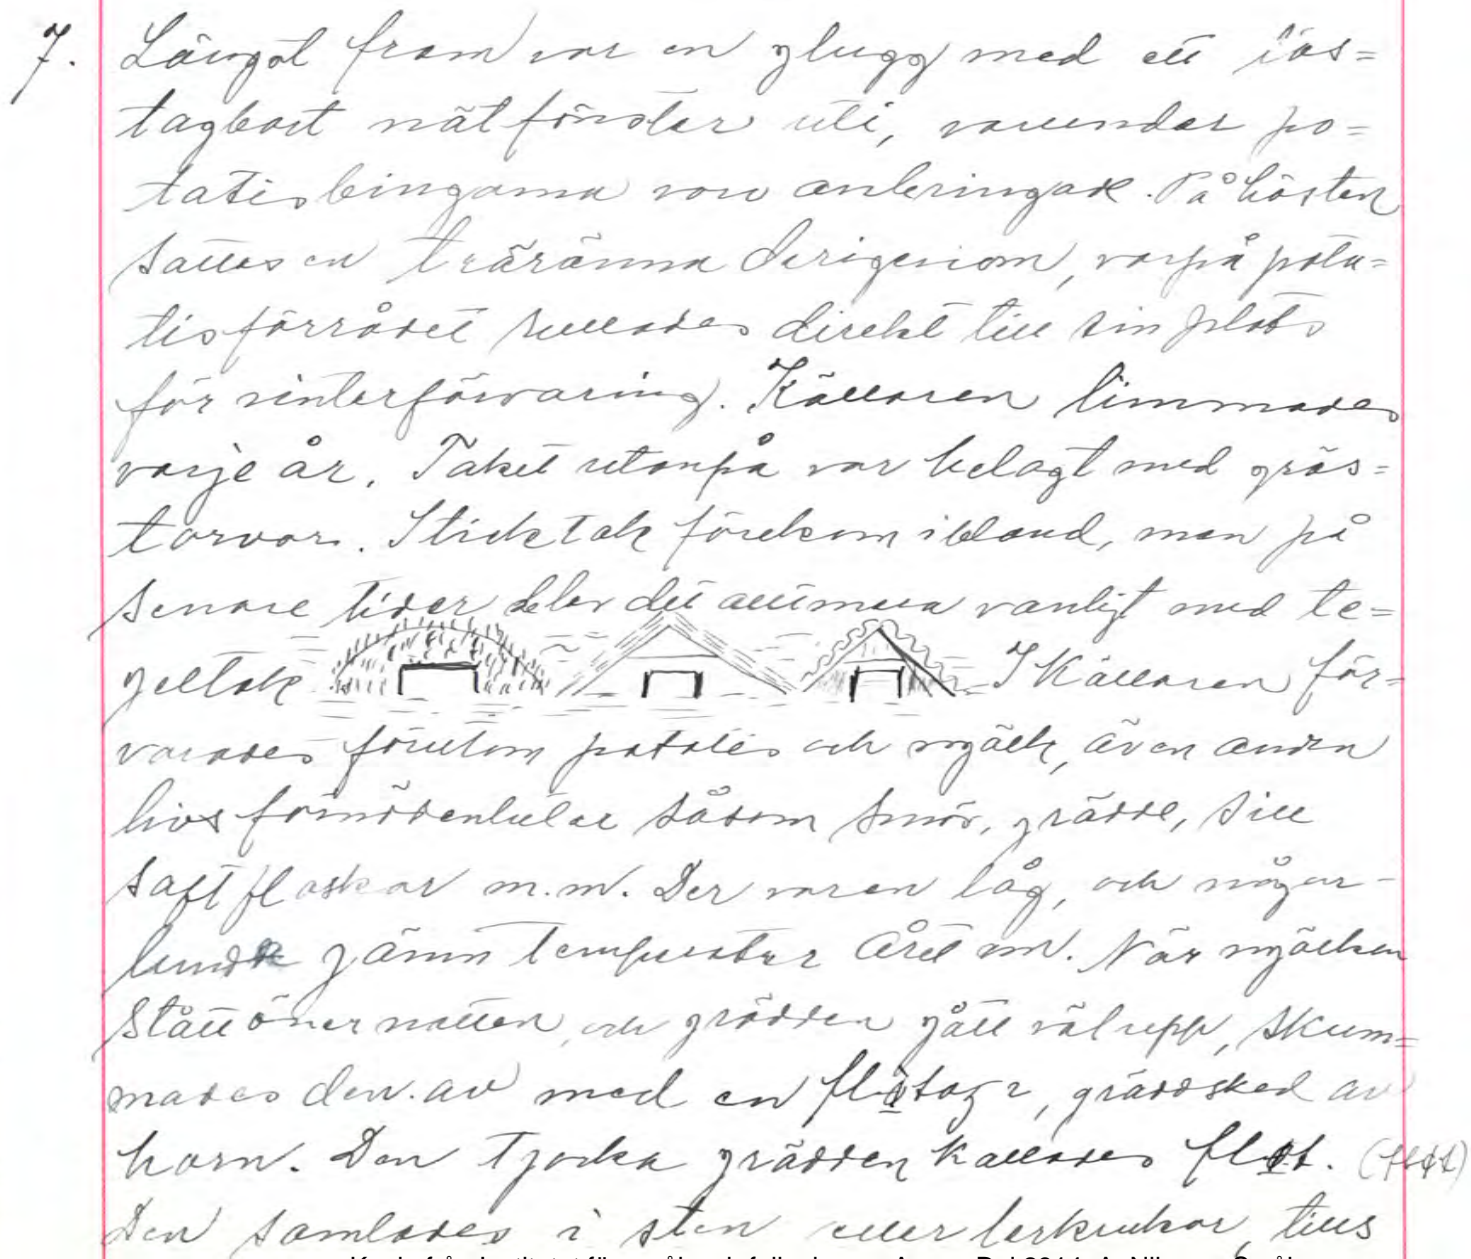 7. Längst fram var en glugg med ett lös=
tagbart nätfönster uti, varunder po=
tatisbingarna voro anbringade. På hösten
sattes en träränna derigenom, varpå pota=
tisförrådet rullades direkt till sin plats
för vinterförvaring. Källaren limmades
varje år. Taket utanpå var belagt med gräs=
torvor. Sticktak förekom ibland, men på
senare tider blev det allt mera vanligt med te=
geltak I Källaren för=
varades förutom potatis och mjölk, även andra
livsförnödenheter såsom smör, grädde, sill
saftflaskor m.m. Der var en låg, och någor-
lunda jämn temperatur året om. När mjölken
stått över natten, och grädden gått väl upp, skum=
mades den av med en, gräddsked av
horn. Den tjocka grädden kallades
Den samlades i sten eller lerkrukor, tills